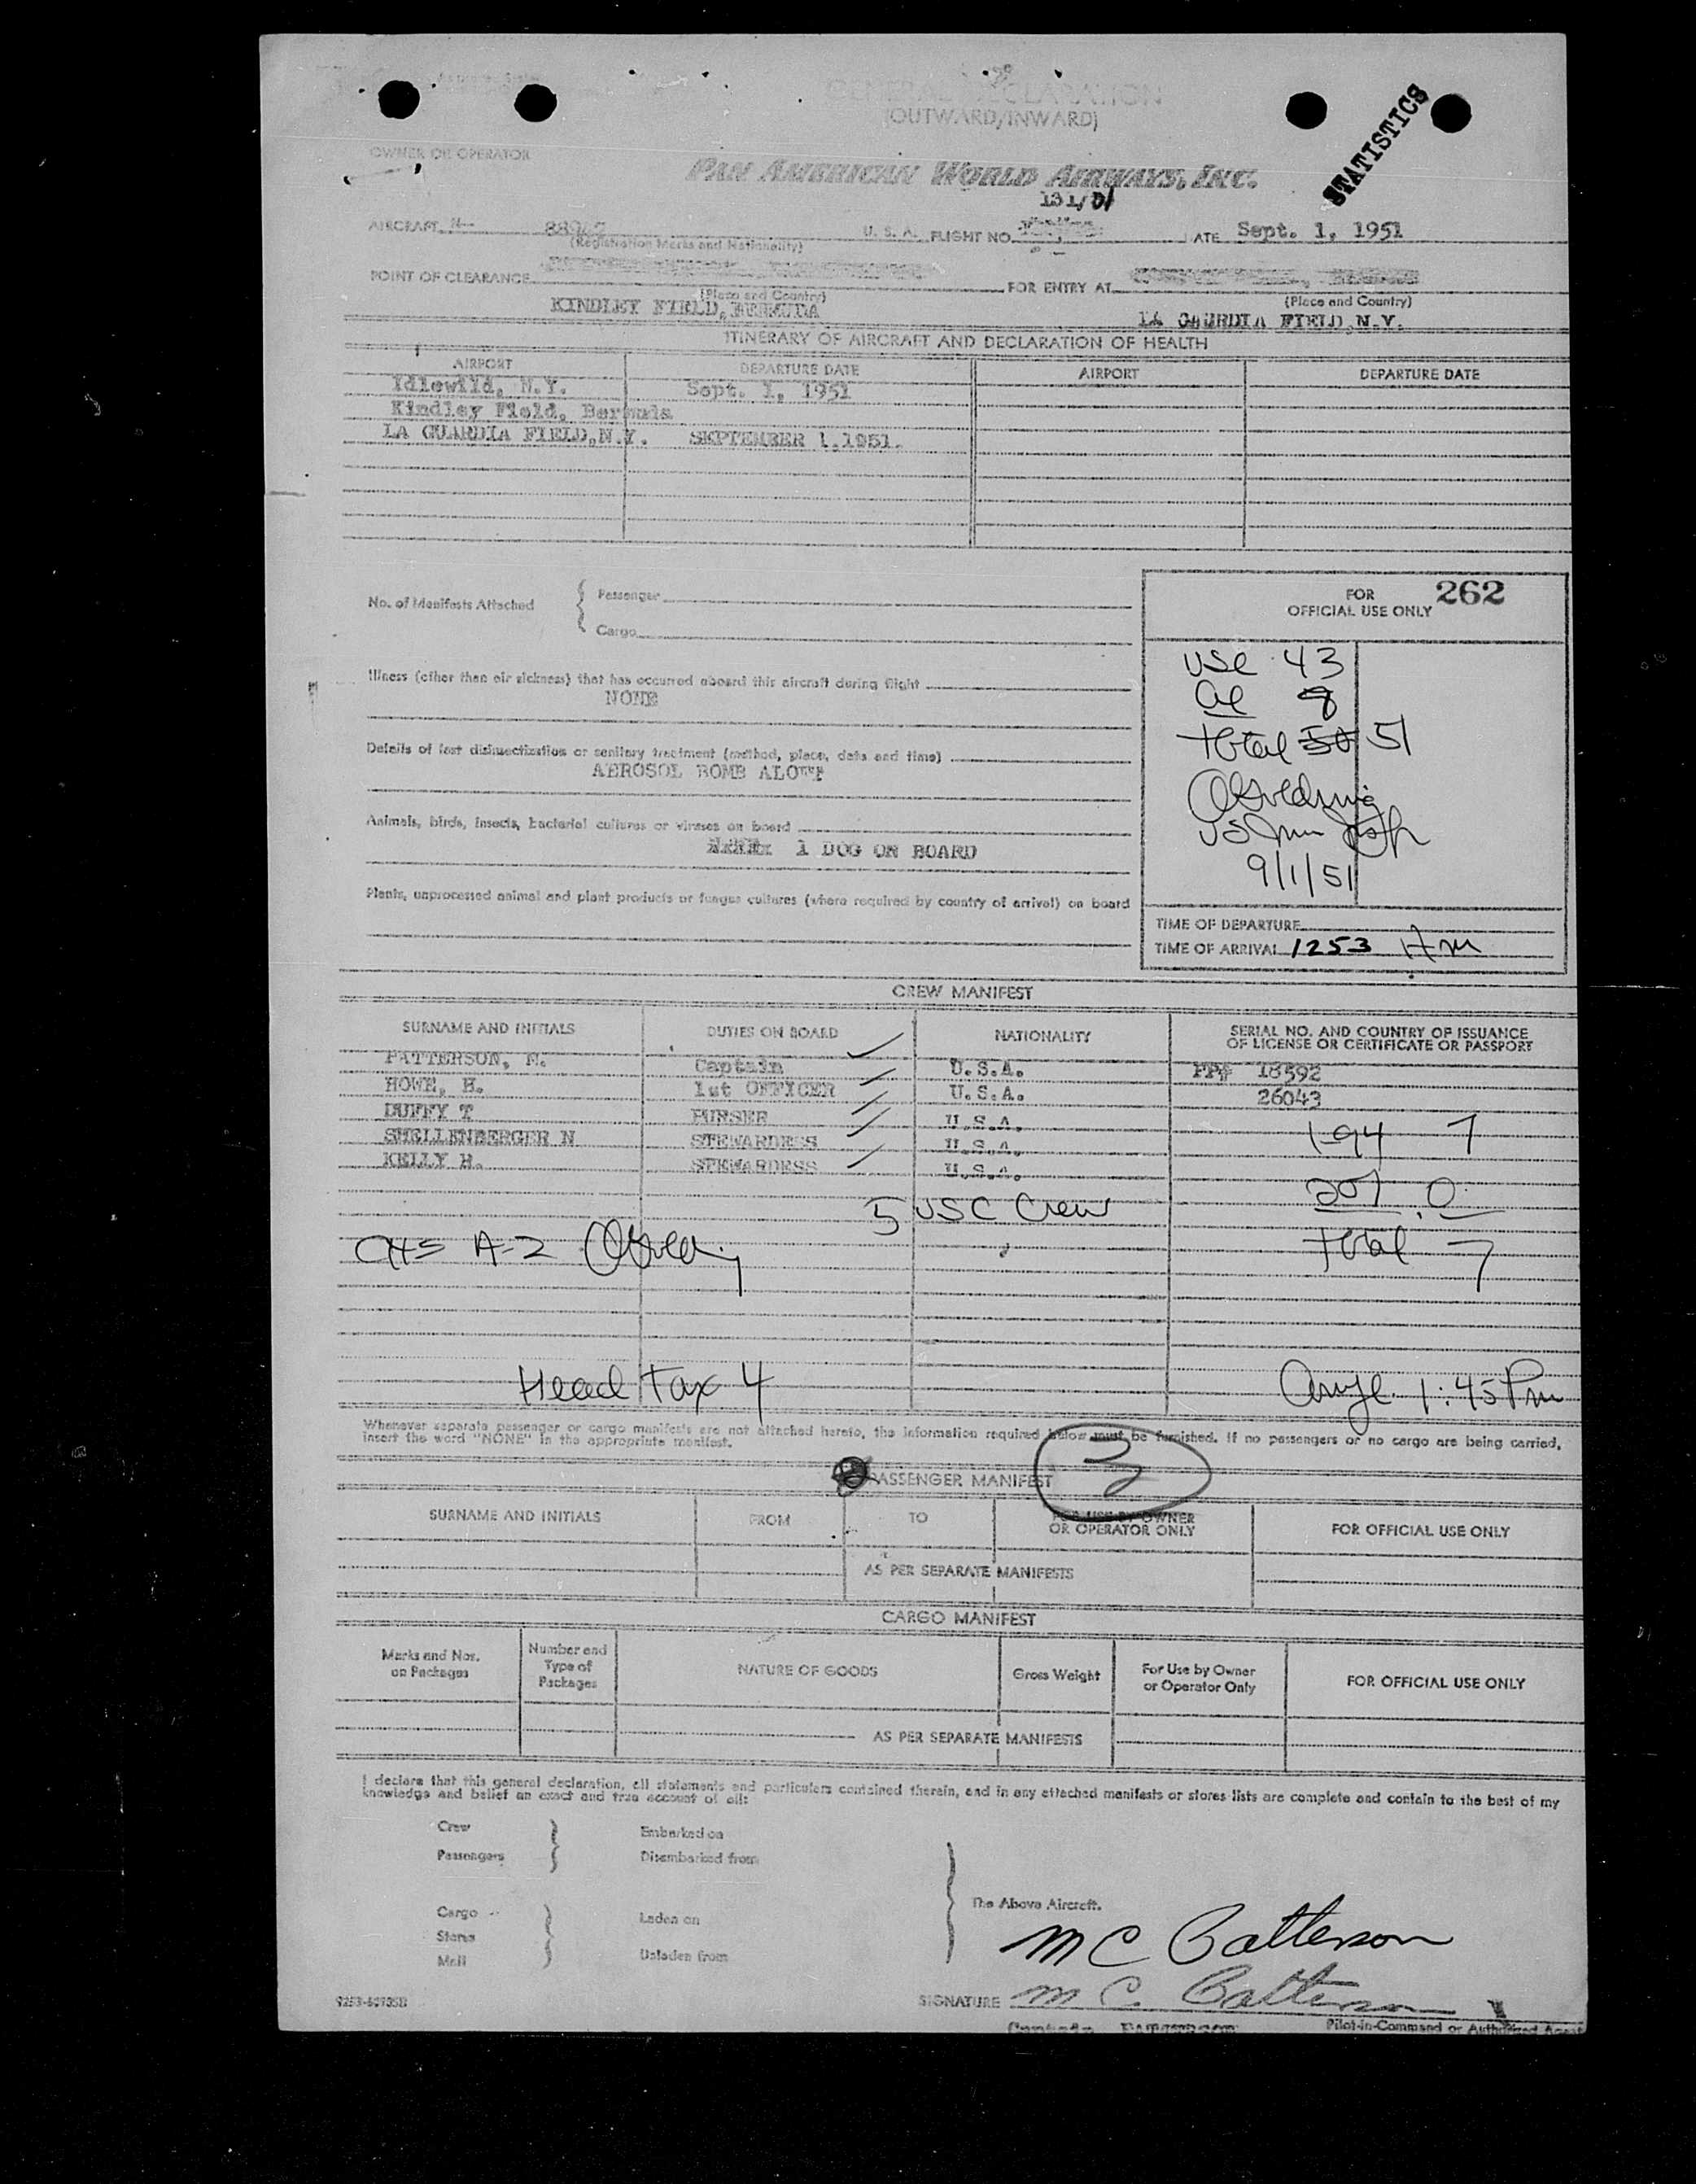 GENERAL DECLARATION
(OUTWARD/INWARD)
STATISTICS
OWNER OR OPERATOR
PAN AMERICAN WORLD AIRWAYS, INC.
131/
AIRCRAFT N- U. S. A. FLIGHT NO. DATE Sept. 1, 1951
(Registration Marks and Nationality)
POINT OF CLEARANCE FOR ENTRY AT
(Place and Country) (Place and Country)
KINDLEY FIELD, BERMUDA LA GAURDIA FIELD,N.Y.
ITINERARY OF AIRCRAFT AND DECLARATION OF HEALTH
AIRPORT DEPARTURE DATE AIRPORT DEPARTURE DATE
Idlewild, N.Y. Sept. 1, 1951
Kindley Field, Bermuda
LA GUARDIA FIELD,N.Y. SEPTEMBER 1,1951.
No. of Manifests Attached
Passenger
Cargo
FOR 262
OFFICIAL USE ONLY
USC 43
al 8
total 50 51
9/1/51
Illness (other than air sickness) that has occurred aboard this aircraft during flight
NONE
Details of last disinsectization or sanitary treatment (method, place, date and time)
AEROSOL BOMB
Animals, birds, insects, bacterial cultures or viruses on board
1 DOG ON BOARD
Plants, unprocessed animal and plant products or fungus cultures (where required by country of arrival) on board
TIME OF DEPARTURE
TIME OF ARRIVAL 1253
CREW MANIFEST
SURNAME AND INITIALS DUTIES ON BOARD NATIONALITY SERIAL NO. AND COUNTRY OF ISSUANCE
OF LICENSE OR CERTIFICATE OR PASSPORT
PATTERSON, M. Captain U.S.A. PP# 18592
HOWE, H. 1st OFFICER U.S.A. 26043
DUFFY T PURSER U.S.A.
SHELLENBERGER N STEWARDESS U.S.A.
KELLY H. STEWARDESS U.S.A.
194 7
207 0
Total 7
5 USC Crew
A-2
Head Tax 4
1:45 Pm
Whenever separate passenger or cargo manifests are not attached hereto, the information required below must be furnished. If no passengers or no cargo are being carried,
insert the word "NONE" in the appropriate manifest.
3
PASSENGER MANIFEST
SURNAME AND INITIALS FROM TO FOR USE BY OWNER
OR OPERATOR ONLY FOR OFFICIAL USE ONLY
AS PER SEPARATE MANIFESTS
CARGO MANIFEST
Marks and Nos.
on Packages
Number and
Type of
Packages
NATURE OF GOODS
Gross Weight
For Use by Owner
or Operator Only
FOR OFFICIAL USE ONLY
AS PER SEPARATE MANIFESTS
I declare that this general declaration, all statements and particulars contained therein, and in any attached manifests or stores lists are complete and contain to the best of my
knowledge and belief an exact and true account of all:
Crew Embarked on
Passengers Disembarked from
The Above Aircraft.
Cargo Laden on
Stores
Mail Unladen from
M C Patterson
SIGNATURE M C. Patterson
Captain PATTERSON Pilot-in-Command or Authorized Agent